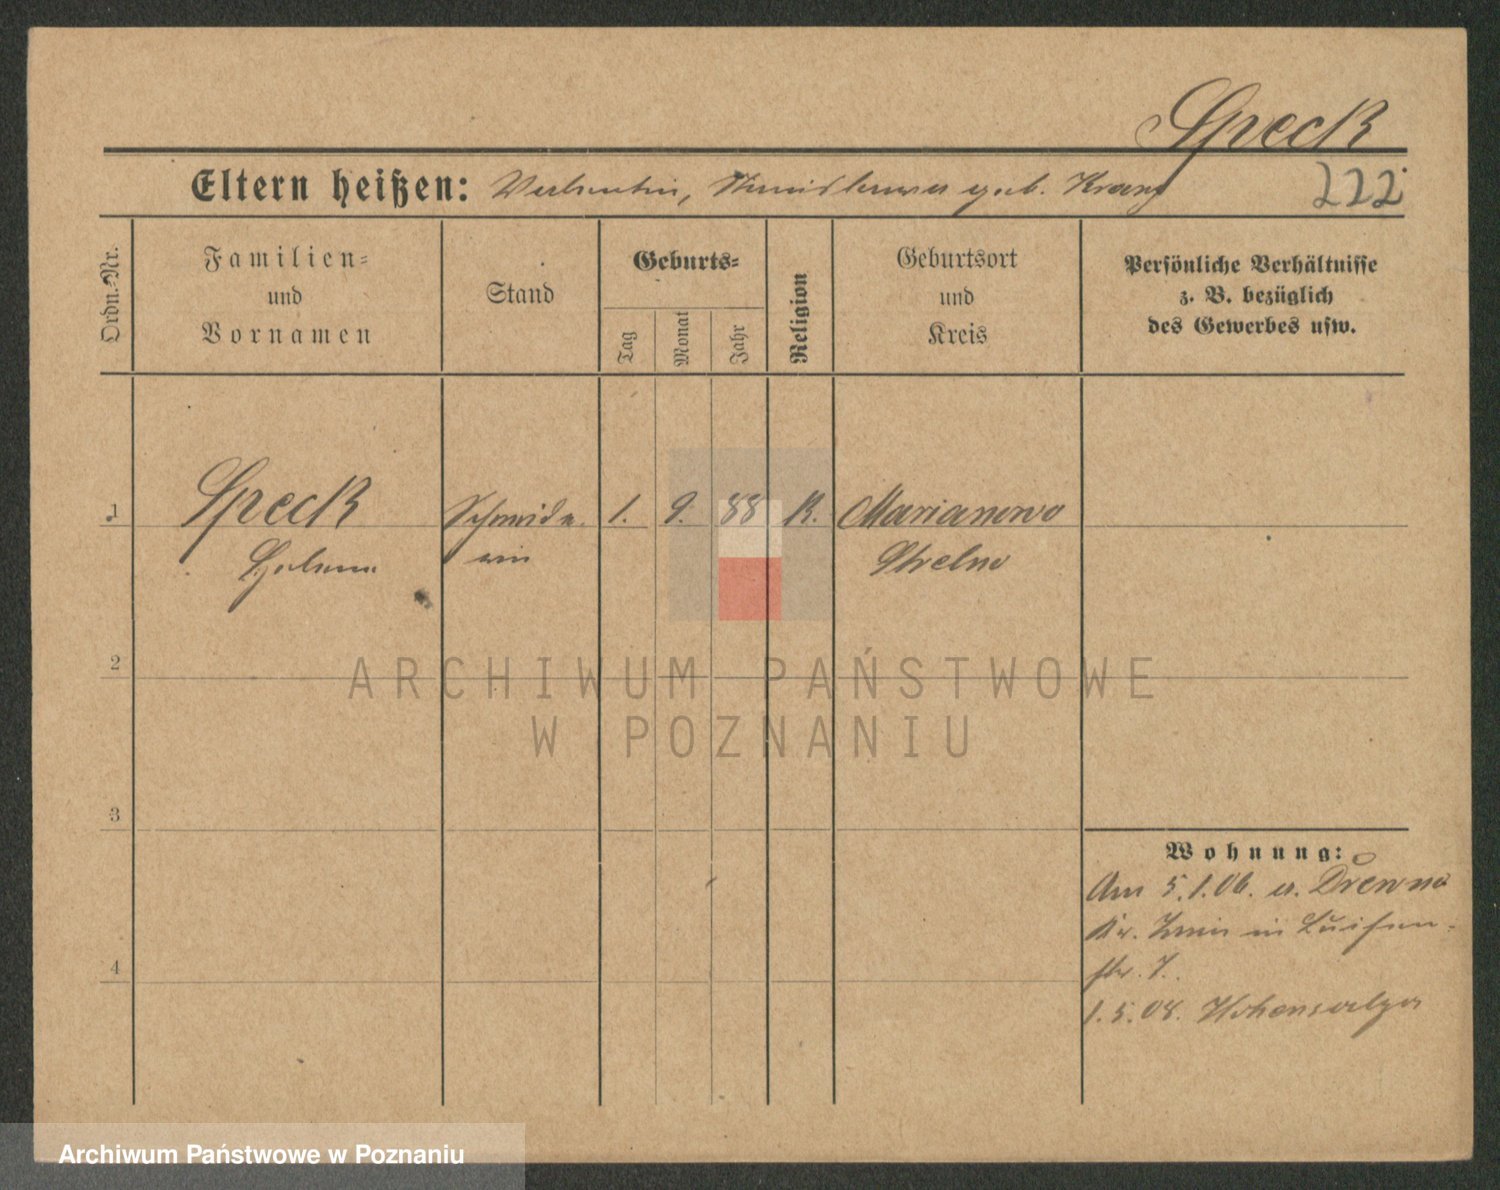 Speck
Eltern heißen: Valentin, Stanislawa geb. Kranz
222
Ordn.-Nr.
Familien-
und
Vornamen
Stand
Geburts-
Tag
Monat
Jahr
Religion
Geburtsort
und
Kreis
Persönliche Verhältnisse
z. B. bezüglich
des Gewerbes usw.
1
Speck
Helena
Schneide-
rin
1. 9. 88 K.
Marianowo
Strelno
2
3
4
Wohnung:
Am 5.1.06. a. Drewno
Kr. Znin in Luisen-
str. 7.
1.5.08. Hohensalza
ARCHIWUM PAŃSTWOWE
W POZNANIU
Archiwum Państwowe w Poznaniu